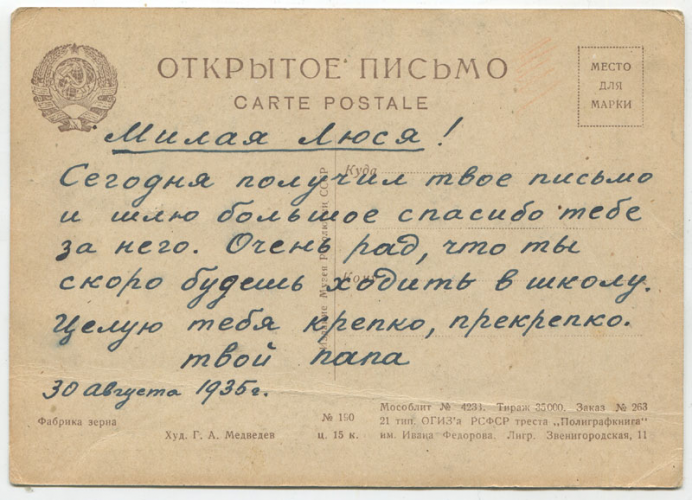 ОТКРЫТОЕ ПИСЬМО
CARTE POSTALE
МЕСТО
ДЛЯ
МАРКИ
Милая Люся!
Куда
Сегодня получил твое письмо
и шлю большое спасибо тебе
за него. Очень рад, что ты
скоро будешь ходить в школу.
Целую тебя крепко, прекрепко.
твой папа
30 августа 1935 г.
Издание Музея Революции СССР
Фабрика зерна
Худ. Г. А. Медведев
№ 190
ц. 15 к.
Мособлит № 4231. Тираж 35000. Заказ № 263
21 тип. ОГИЗ'а РСФСР треста „Полиграфкнига"
им. Ивана Федорова. Лнгр. Звенигородская, 11